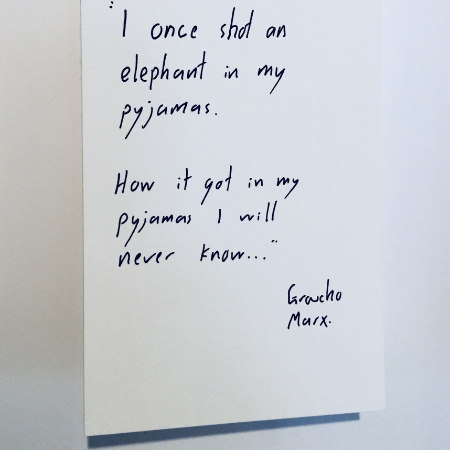 "I once shot an
elephant in my
pyjamas.
How it got in my
pyjamas I will
never know..."
Groucho
Marx.